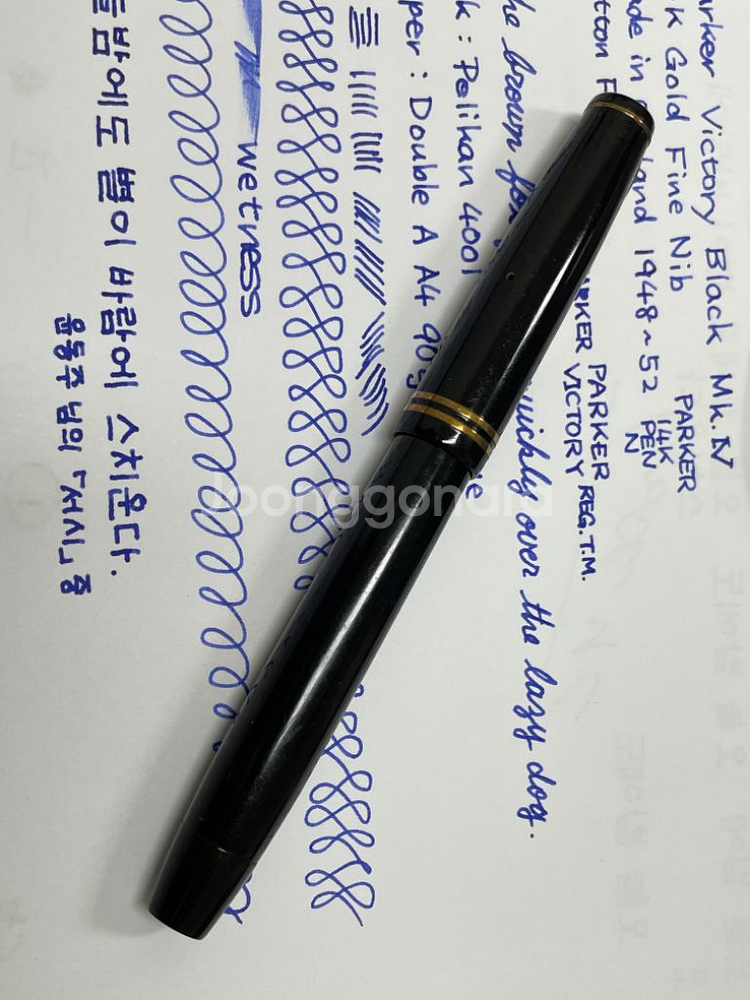 arker Victory Black Mk.IV
k Gold Fine Nib
PARKER
14K
PEN
N
ade in land 1948~52
tton F
PARKER
RKER VICTORY REG.T.M.
he brown fo uickly over the lazy dog.
k : Pelikan 4001
per : Double A A4 90g
wetness
늘밤에도 별이 바람에 스치운다.
윤동주 님의 「서시」 중
joonggonara